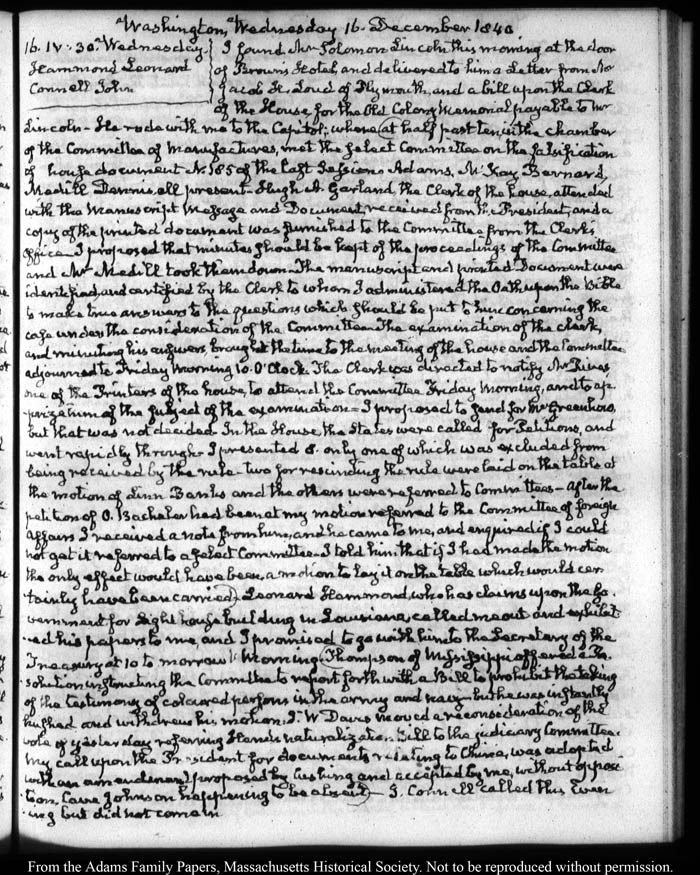 Washington, Wednesday 16. December 1840
16. IV:30. Wednesday.
Hammond Leonard
Connell John
I found Mr Solomon Lincoln this morning at the door
of Brown's Hotel, and delivered to him a Letter from Mr
Jacob H. Loud of Plymouth, and a bill upon the Clerk
of the House for the Old Colony Memorial payable to Mr
Lincoln— He rode with me to the Capitol; where at half past ten, in the chamber
of the Committee of Manufactures, met the select Committee on the falsification
of house document N. 185 of the last Session. Adams, McKay, Bernard,
Medill, Dennis, all present— Hugh A. Garland, the Clerk of the house, attended
with the Manuscript Message and Document, received from the President, and a
copy of the printed document was furnished to the Committee from the Clerk's
Office— I proposed that minutes should be kept of the proceedings of the Committee
and Mr Medill took them down— The manuscript and printed Document were
identified, and certified by the Clerk to whom I administered the Oath upon the Bible
to make true answers to the questions which should be put to him concerning the
case under the consideration of the Committee— The examination of the Clerk,
and minuting his answers, brought the time to the meeting of the house and the Committee
adjourned to Friday Morning 10. O'Clock. The Clerk was directed to notify Mr Rives
one of the Printers of the house, to attend the Committee Friday Morning, and to ap-
prize him of the subject of the examination— I proposed to send for Mr Greenhow,
but that was not decided. In the House, the States were called for Petitions, and
went rapidly through— I presented 8. only one of which was excluded from
being received by the rule— two for rescinding the rule were laid on the table at
the motion of Linn Banks and the others were referred to Committees— After the
petition of O. Bacheler had been at my motion referred to the Committee of foreign
Affairs I received a note from him, and he came to me, and enquired if I could
not get it referred to a select Committee— I told him that if I had made the motion
the only effect would have been, a motion to lay it on the table which would cer-
tainly have been carried. Leonard Hammond, who has claims upon the Go-
vernment for Light house building in Louisiana, called me out and exhibit-
ed his papers to me, and I promised to go with him to the Secretary of the
Treasury at 10 to morrow Morning. Thompson of Mississippi offered a Re-
solution instructing the Committee to report forthwith a Bill to prohibit the taking
of the testimony of coloured persons in the army and navy— but he was instantly
hushed and withdrew his motion. J. W Davis moved a reconsideration of the
vote of yesterday referring naturalization Bill to the judiciary Committee.
My call upon the President for documents relating to China, was adopted
with an amendment proposed by Cushing and accepted by me, without opposi-
tion, Cave Johnson happening to be absent— J. Connell called this Even-
ing but did not come in
From the Adams Family Papers, Massachusetts Historical Society. Not to be reproduced without permission.